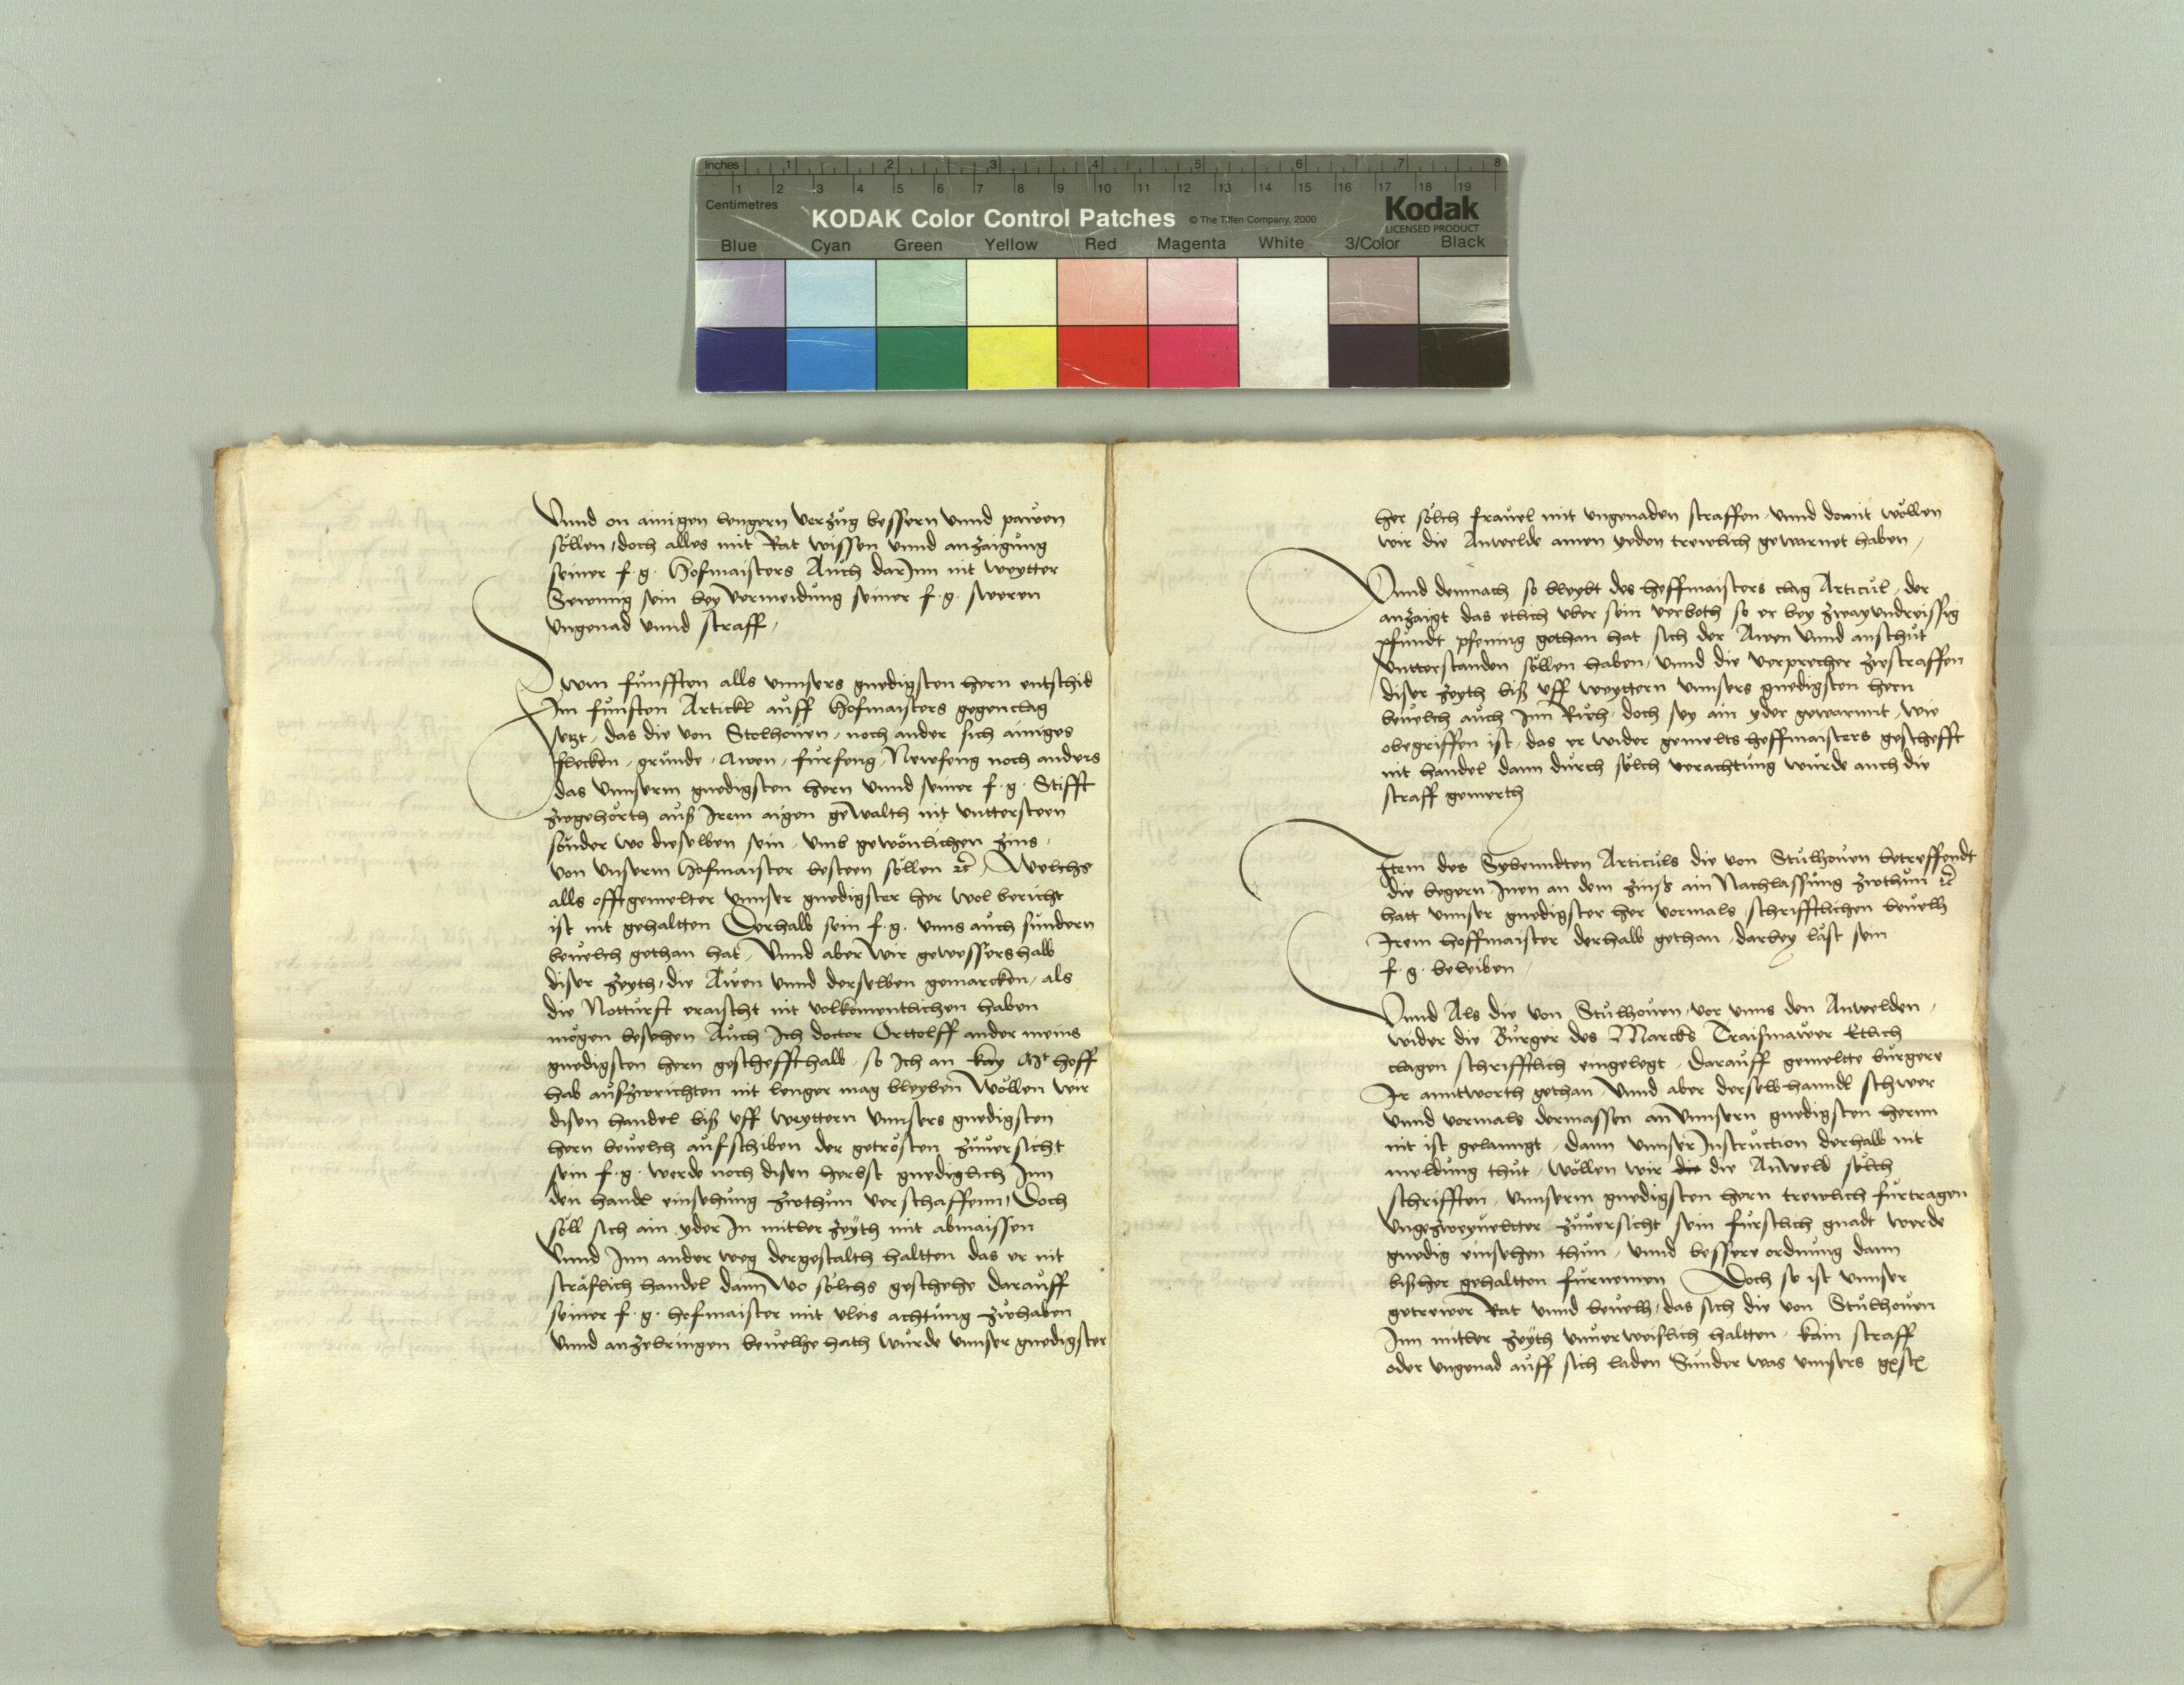 Inches 1 2 3 4 5 6 7 8
1 2 3 4 5 6 7 8 9 10 11 12 13 14 15 16 17 18 19
Centimetres
KODAK Color Control Patches © The Tiffen Company, 2000 Kodak
LICENSED PRODUCT
Blue Cyan Green Yellow Red Magenta White 3/Color Black
Vnnd on ainigen lengern verzug bessern vnnd pawen
söllen, doch alles mit Rat wissen vnnd anzaigung
seiner f. g. Hofmaisters Auch darInn nit weytter
Sewmig sein bey vermeidung seiner f. g. sweren
vngenad vnnd straff,
Zwm funfften alls vnnsers gnedigsten hern entschid
Im funften Artickl auff Hofmaisters gegenclag
setzt, das die von Stolhouen, noch ander sich ainiges
flecken, grunde, Awen, furfeng, Newfeng noch anders
das vnnserm gnedigsten hern vnnd seiner f. g. Stifft
zwgehörth auß Irem aigen gewalth nit vnttersteen
sonder wo dieselben sein, vmb gewönlichen zins,
von vnserm Hofmaister besteen söllen etc, Welchs
alls offtgemelter vnnser gnedigster her wol bericht
ist nit gehaltten Derhalb sein f. g. vnns auch sundern
beuelch gethan hat, Vnnd aber wir gewessers halb
diser zeyth, die Awen vnnd derselben gemarcken, als
die Notturft eraischt nit volkomentlichen haben
mögen besehen Auch Ich doctor Orttolff ander meins
gnedigsten hern gescheffthalb, so Ich an kay Mt hoff
hab außzwrichten nit lenger mag bleyben Wöllen wir
disen handel biß vff weyttern vnnsers gnedigsten
hern beuelch aufschiben der getrösten zuuersicht
sein f. g. werde noch disen herbst gnediglich Inn
den handl einsehung zwthun verschaffenn, Doch
söll sich ain yder In mitler zeyth mit abmaissen
Vnnd Inn ander weg dergestalth haltten das er nit
sträflich handel dann wo sölchs geschehe darauff
seiner f. g. hofmaister mit vleis achtung zwhaben
vnnd anzebringen beuelhe hath wurde vnnser gnedigster
her sölch frauel mit vngenaden straffen, vnnd domit wöllen
wir die Anwelde ainen yeden trewlich gewarnet haben,
Vnnd demnach so bleybt des hoffmaisters clag Articul, der
anzaigt das etlich vber sein verboth so er bey zwayvndreissig
pfundt pfening gethan hat sich der Awen vnnd anschut
vntterstanden söllen haben, vnnd die verprecher zwstraffen
diser zeyth biß vff weyttern vnnsers gnedigsten hern
beuelch auch Inn Rueh, doch sey ain yder gewarnnt, wie
obegriffen ist, das er wider gemelts hoffmaisters gescheft
nit handel dann durch sölch verachtung wurde auch die
straff gemerth
Item des Sybenndten Articuls die von Stulhouen betreffendt
die begern Inen an dem zinß ain Nachlassung zwthun etc
hatt vnnser gnedigster her vormals schrifftlichen beuelh
Irem hoffmaister derhalb gethan, darbey läst sein
f. g. beleiben,
Vnnd Als die von Stulhouen, vor vnns den Anwelden,
wider die Burger des Marcks Traismawer Etlich
clagen schrifftlich eingelegt, Darauff gemeltte burgere
Ir anntworth gethan, Vnnd aber derselb hanndl schwer
vnnd vormals dermassen an vnnsern gnedigsten hernn
nit ist gelanngt, dann vnnser Instruction derhalb nit
meldung thut, wöllen wir die die Anweld sölch
schrifften, vnnserm gnedigsten hern trewlich furtragen
vngezweyueltter zuuersicht sein furstlich gnadt werde
gnedig einsehen thun, vnnd bessere ordnung dann
bißher gehaltten furnemen Doch so ist vnnser
getrewer Rat vnnd beuelh, das sich die von Stulhouen
Inn mitler zeyth vnuerweislich haltten, kain straff
oder vngenad auff sich laden Sunder was vnnsers